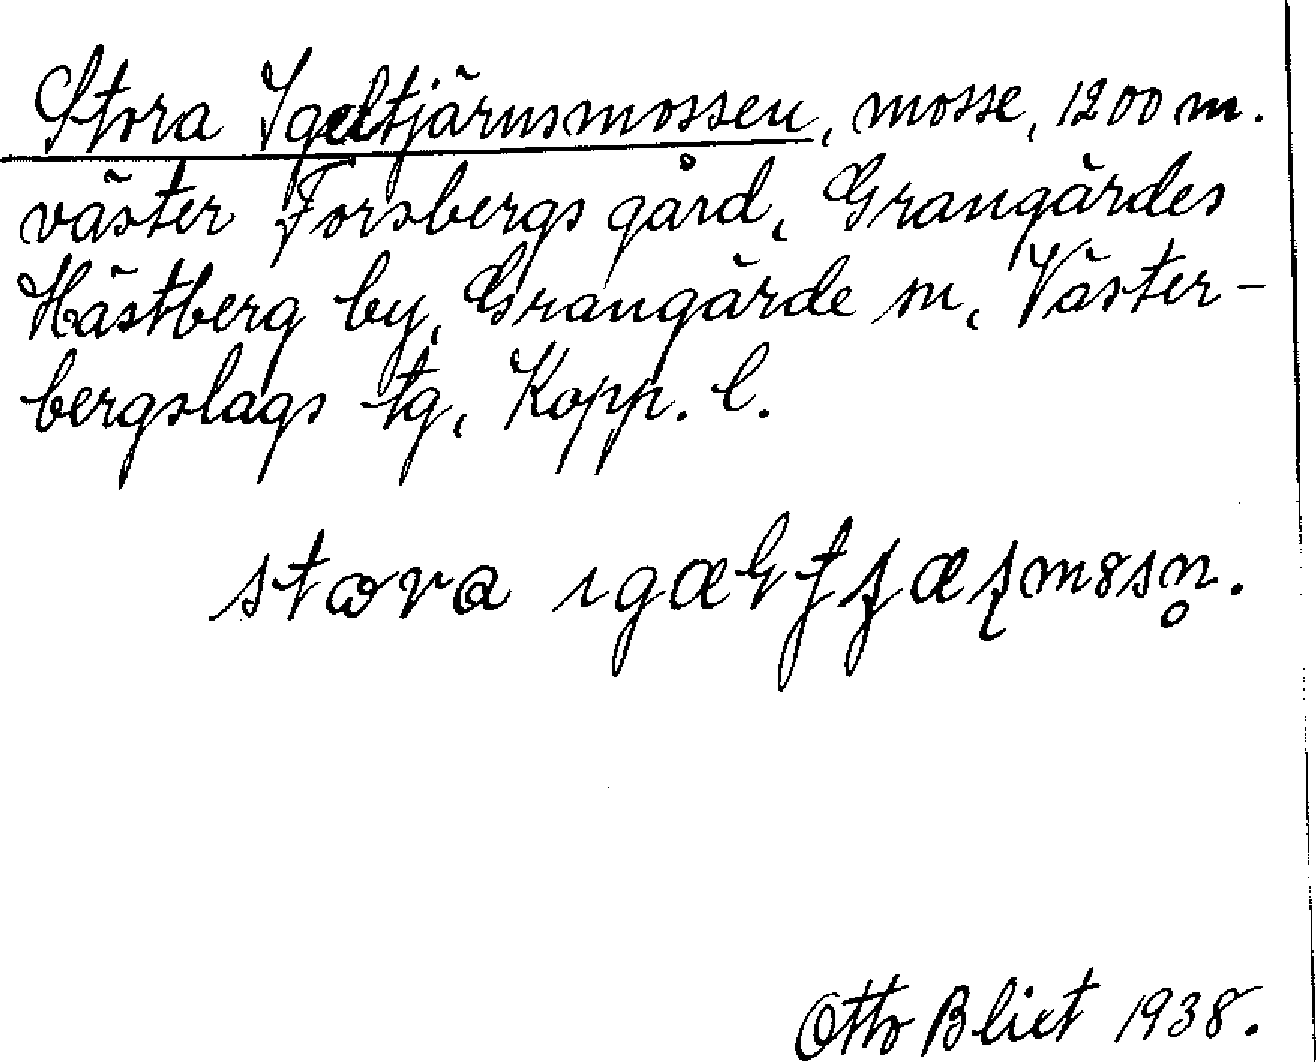 Stora Igeltjärnsmossen, mosse, 1200 m.
väster Forsbergs gård, Grangärdes
Hästberg by, Grangärde sn, Väster-
bergslags tg, Kopp. l.
Otto Blixt 1938.